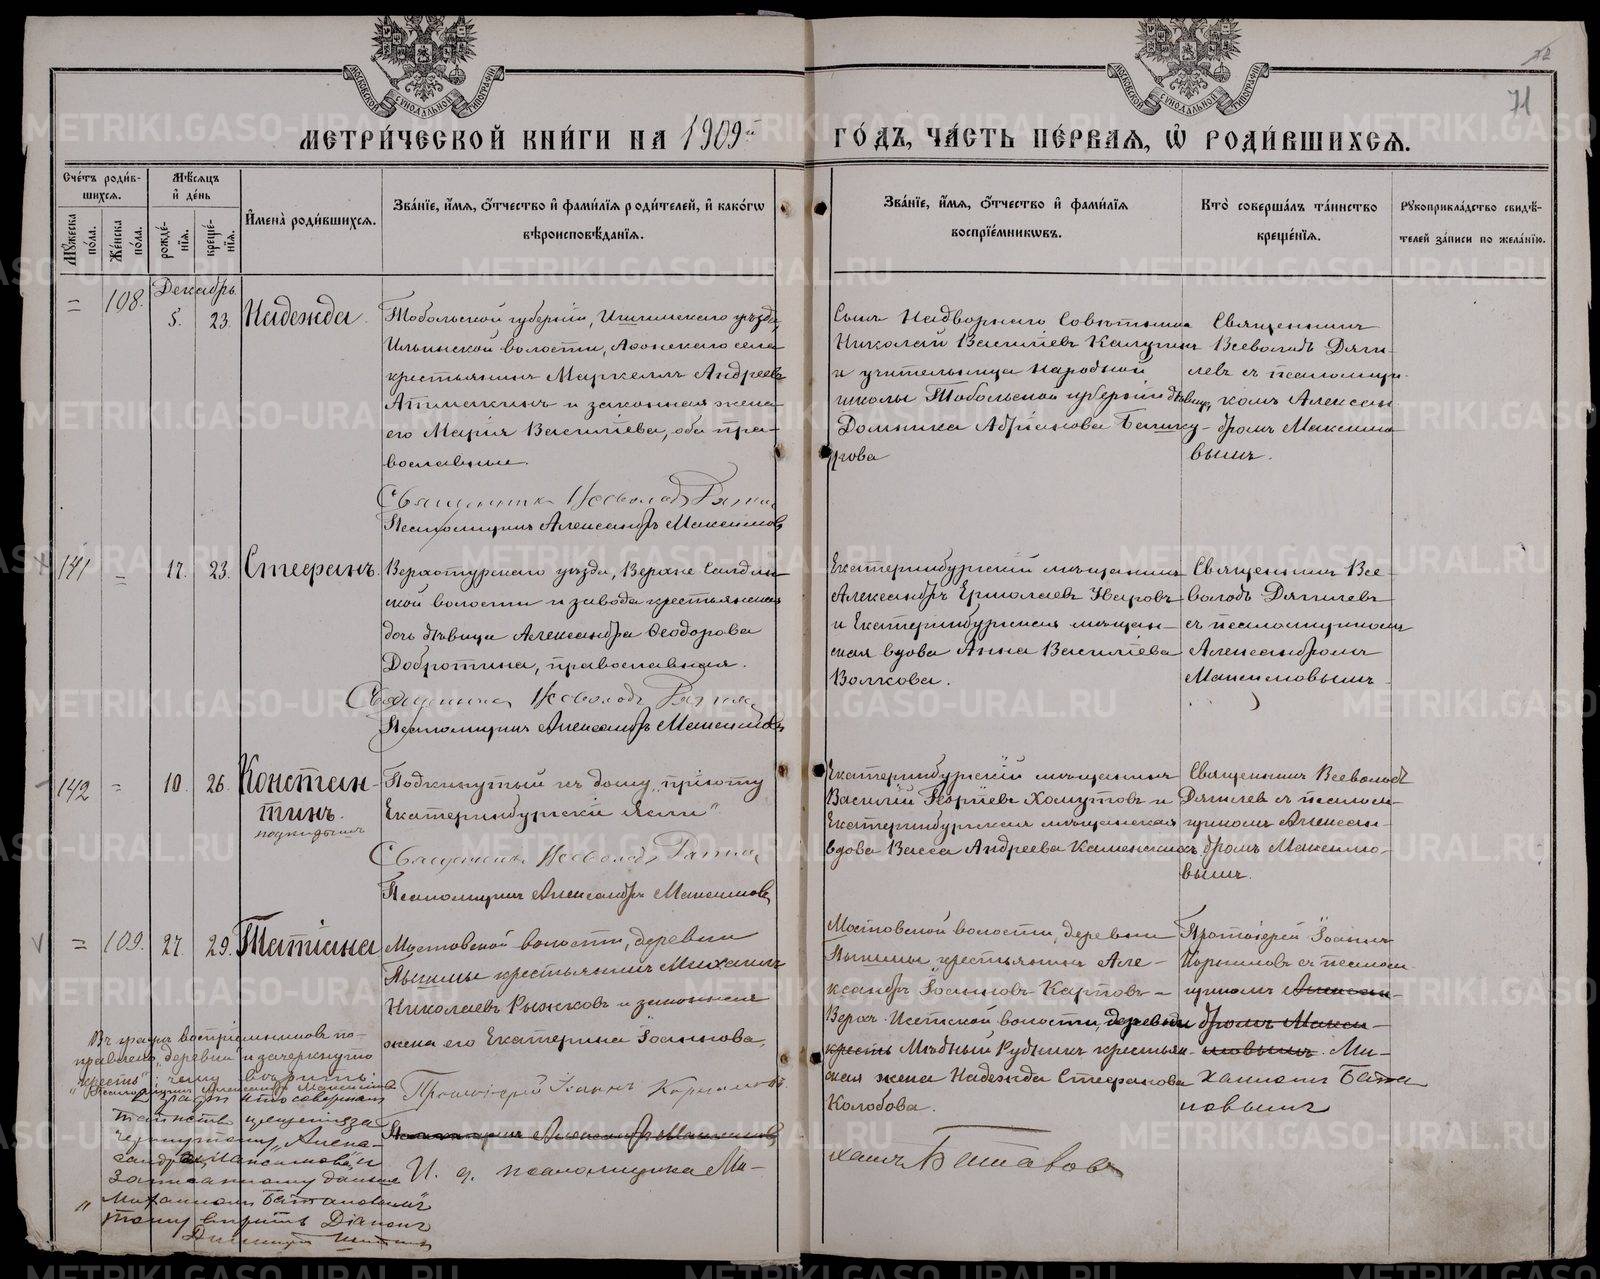 71
МЕТРИ́ЧЕСКОЙ КНИ́ГИ НА 1909й ГО́ДЪ, ЧА́СТЬ ПЕ́РВАЯ, Ѡ РОДИ́ВШИХСЯ.
Сче́тъ роди́в-
шихся.
Мꙋ́жеска по́ла.
Же́нска по́ла.
Мѣ́сяцъ
и҆ де́нь
рожде́-
нїя.
креще́-
нїя.
И҆мена̀ роди́вшихся.
Зва́нїе, и҆́мя, ѻ҆́тчество и҆ фами́лїя роди́телей, и҆ како́гѡ
вѣроисповѣ́данїя.
Зва́нїе, и҆́мя, ѻ҆́тчество и҆ фами́лїя
воспрїе́мникѡвъ.
Кто̀ соверша́лъ та́инство
креще́нїя.
Рꙋкоприкла́дство свидѣ́-
телей за́писи по жела́нїю.
= 108. Декабрь
5. 23. Надежда.
Тобольской губерніи, Ишимскаго уѣзда,
Ильинской волости, Афонскаго села
крестьянинъ Маркеллъ Андреевъ
и законная жена
его Марія Василіева, оба пра-
вославные.
Священникъ Всеволодъ
Псаломщикъ Александръ Максимовъ
Сынъ Надворнаго Совѣтника
Николай Василіевъ Калугинъ
и учительница народной
школы Тобольской губерніи дѣвица
Домника Адріанова
Священникъ
Всеволодъ Дяги-
левъ съ псаломщи-
комъ Алексан-
дромъ Максимо-
вымъ.
141 = 17. 23. Стефанъ.
Верхотурскаго уѣзда, Верхне Салдин-
ской волости и завода крестьянская
дочь дѣвица Александра Ѳеодорова
Добротина, православная.
Священникъ Всеволодъ
Псаломщикъ Александръ Максимовъ
Екатеринбургскій мѣщанинъ
Александръ Ермолаевъ
и Екатеринбургская мѣщан-
ская вдова Анна Василіева
Волкова.
Священникъ Все-
володъ Дягилевъ
съ псаломщикомъ
Александромъ
Максимовымъ.
142 = 10. 26. Констан-
тинъ.
подкидышъ
Подкинутый къ дому „пріюту
Екатеринбургскіе Ясли“
Священникъ Всеволодъ
Псаломщикъ Александръ Максимовъ
Екатеринбургскій мѣщанинъ
Василій Хомутовъ и
Екатеринбургская мѣщанская
вдова Васса Андреева Каменскихъ.
Священникъ Всеволодъ
Дягилевъ съ псалом-
щикомъ Алексан-
дромъ Максимо-
вымъ.
= 109. 27. 29. Татіана
Мостовской волости, деревни
Пышмы крестьянинъ Михаилъ
Николаевъ Рыжковъ и законная
жена его Екатерина Іоаннова,
Протоіерей Іоаннъ
Псаломщикъ Александръ Максимовъ
И. д. псаломщика Ми-
хаилъ Баталовъ
Мостовской волости, деревни
Пышмы, крестьянинъ Але-
ксандръ Іоанновъ Карповъ
Верхъ-Исетской волости, деревни
кресть Мѣдный Рудникъ крестьян-
ская жена Надежда Стефанова
Колобова.
Протоіерей Іоаннъ
съ псалом-
щикомъ Алексан-
дромъ Макси-
мовымъ. Ми-
хаиломъ Бата-
ловымъ
Въ графѣ воспріемниковъ по-
правлено „деревни“ и зачеркнуто
„кресть“; чему вѣрить:
Псаломщикъ Александръ Максимовъ
въ графѣ кто совершалъ
таинство крещенія за-
черкнутому „Алек-
сандромъ Максимовымъ“ и
записанному дальше
„Михаиломъ Баталовымъ“
тому вѣрить Діаконъ
METRIKI.GASO-URAL.RU